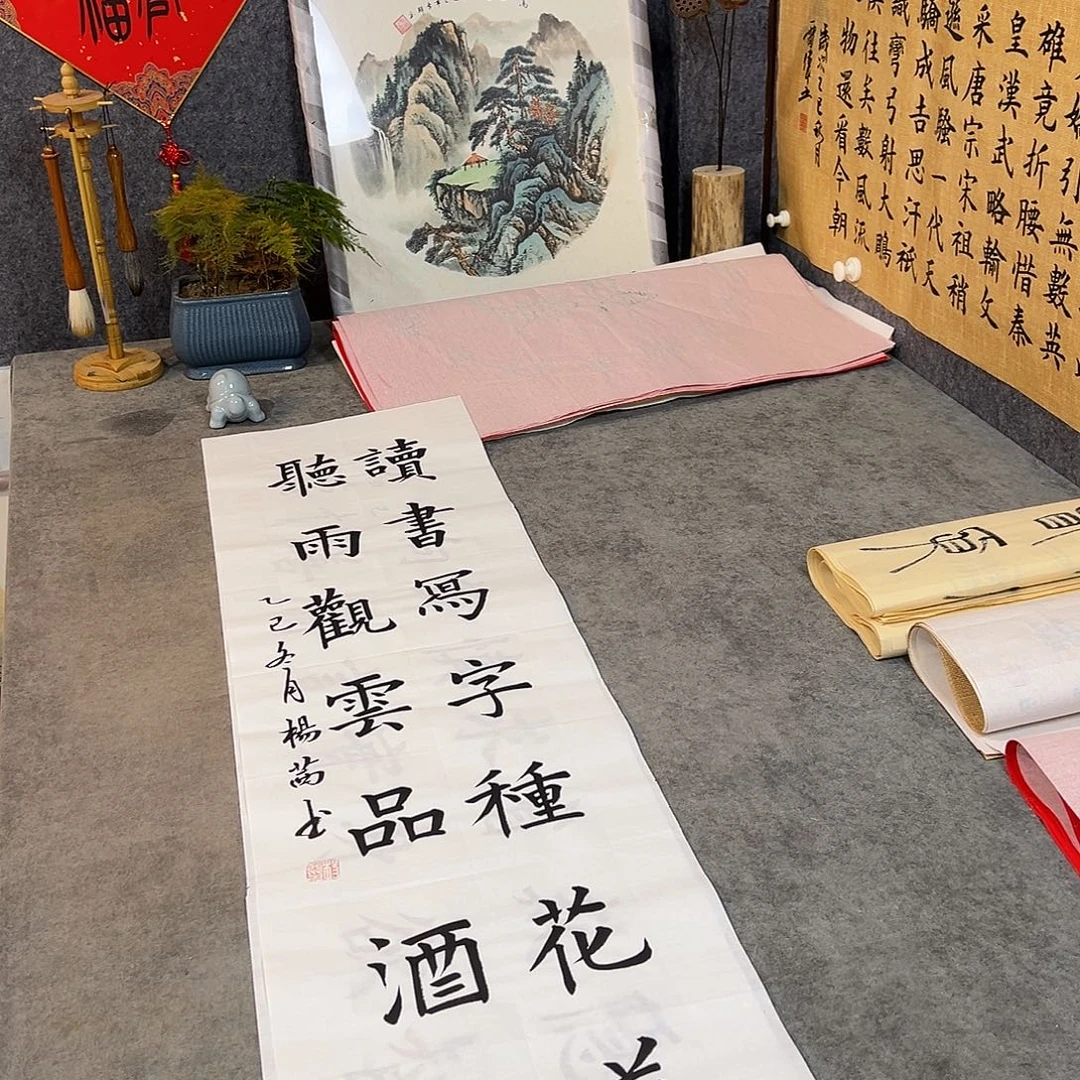 讀書寫字種花
聽雨觀雲品酒
乙巳冬月楊
书
引無數英
雄竟折腰惜秦
皇漢武略輸文
采唐宗宋祖稍
遜風騷一代天
驕成吉思汗祇
識彎弓射大鵰
往矣數風流
物還看今朝
歲次乙巳秋月
福